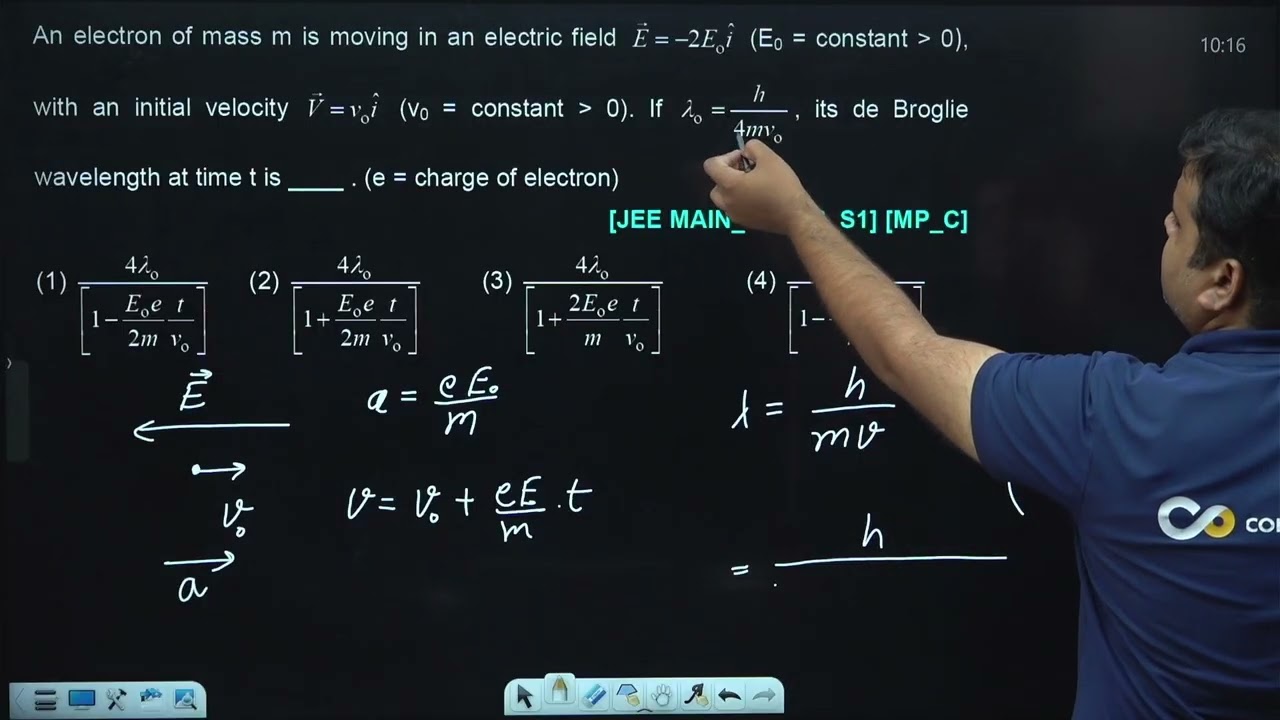 An electron of mass m is moving in an electric field E⃗ = −2E₀î (E₀ = constant > 0),
10:16
with an initial velocity V⃗ = v₀î (v₀ = constant > 0). If λ₀ = h/4mv₀, its de Broglie
wavelength at time t is ____ . (e = charge of electron)
[JEE MAIN_ S1] [MP_C]
(1) 4λ₀/[1 − E₀e/2m t/v₀] (2) 4λ₀/[1 + E₀e/2m t/v₀] (3) 4λ₀/[1 + 2E₀e/m t/v₀] (4) [1−
E⃗ a = eE₀/m λ = h/mv
v₀ v = v₀ + eE/m .t
a = h
CO